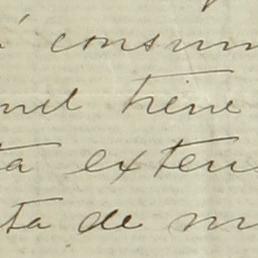 consum
tiene
ta exten
ta de m